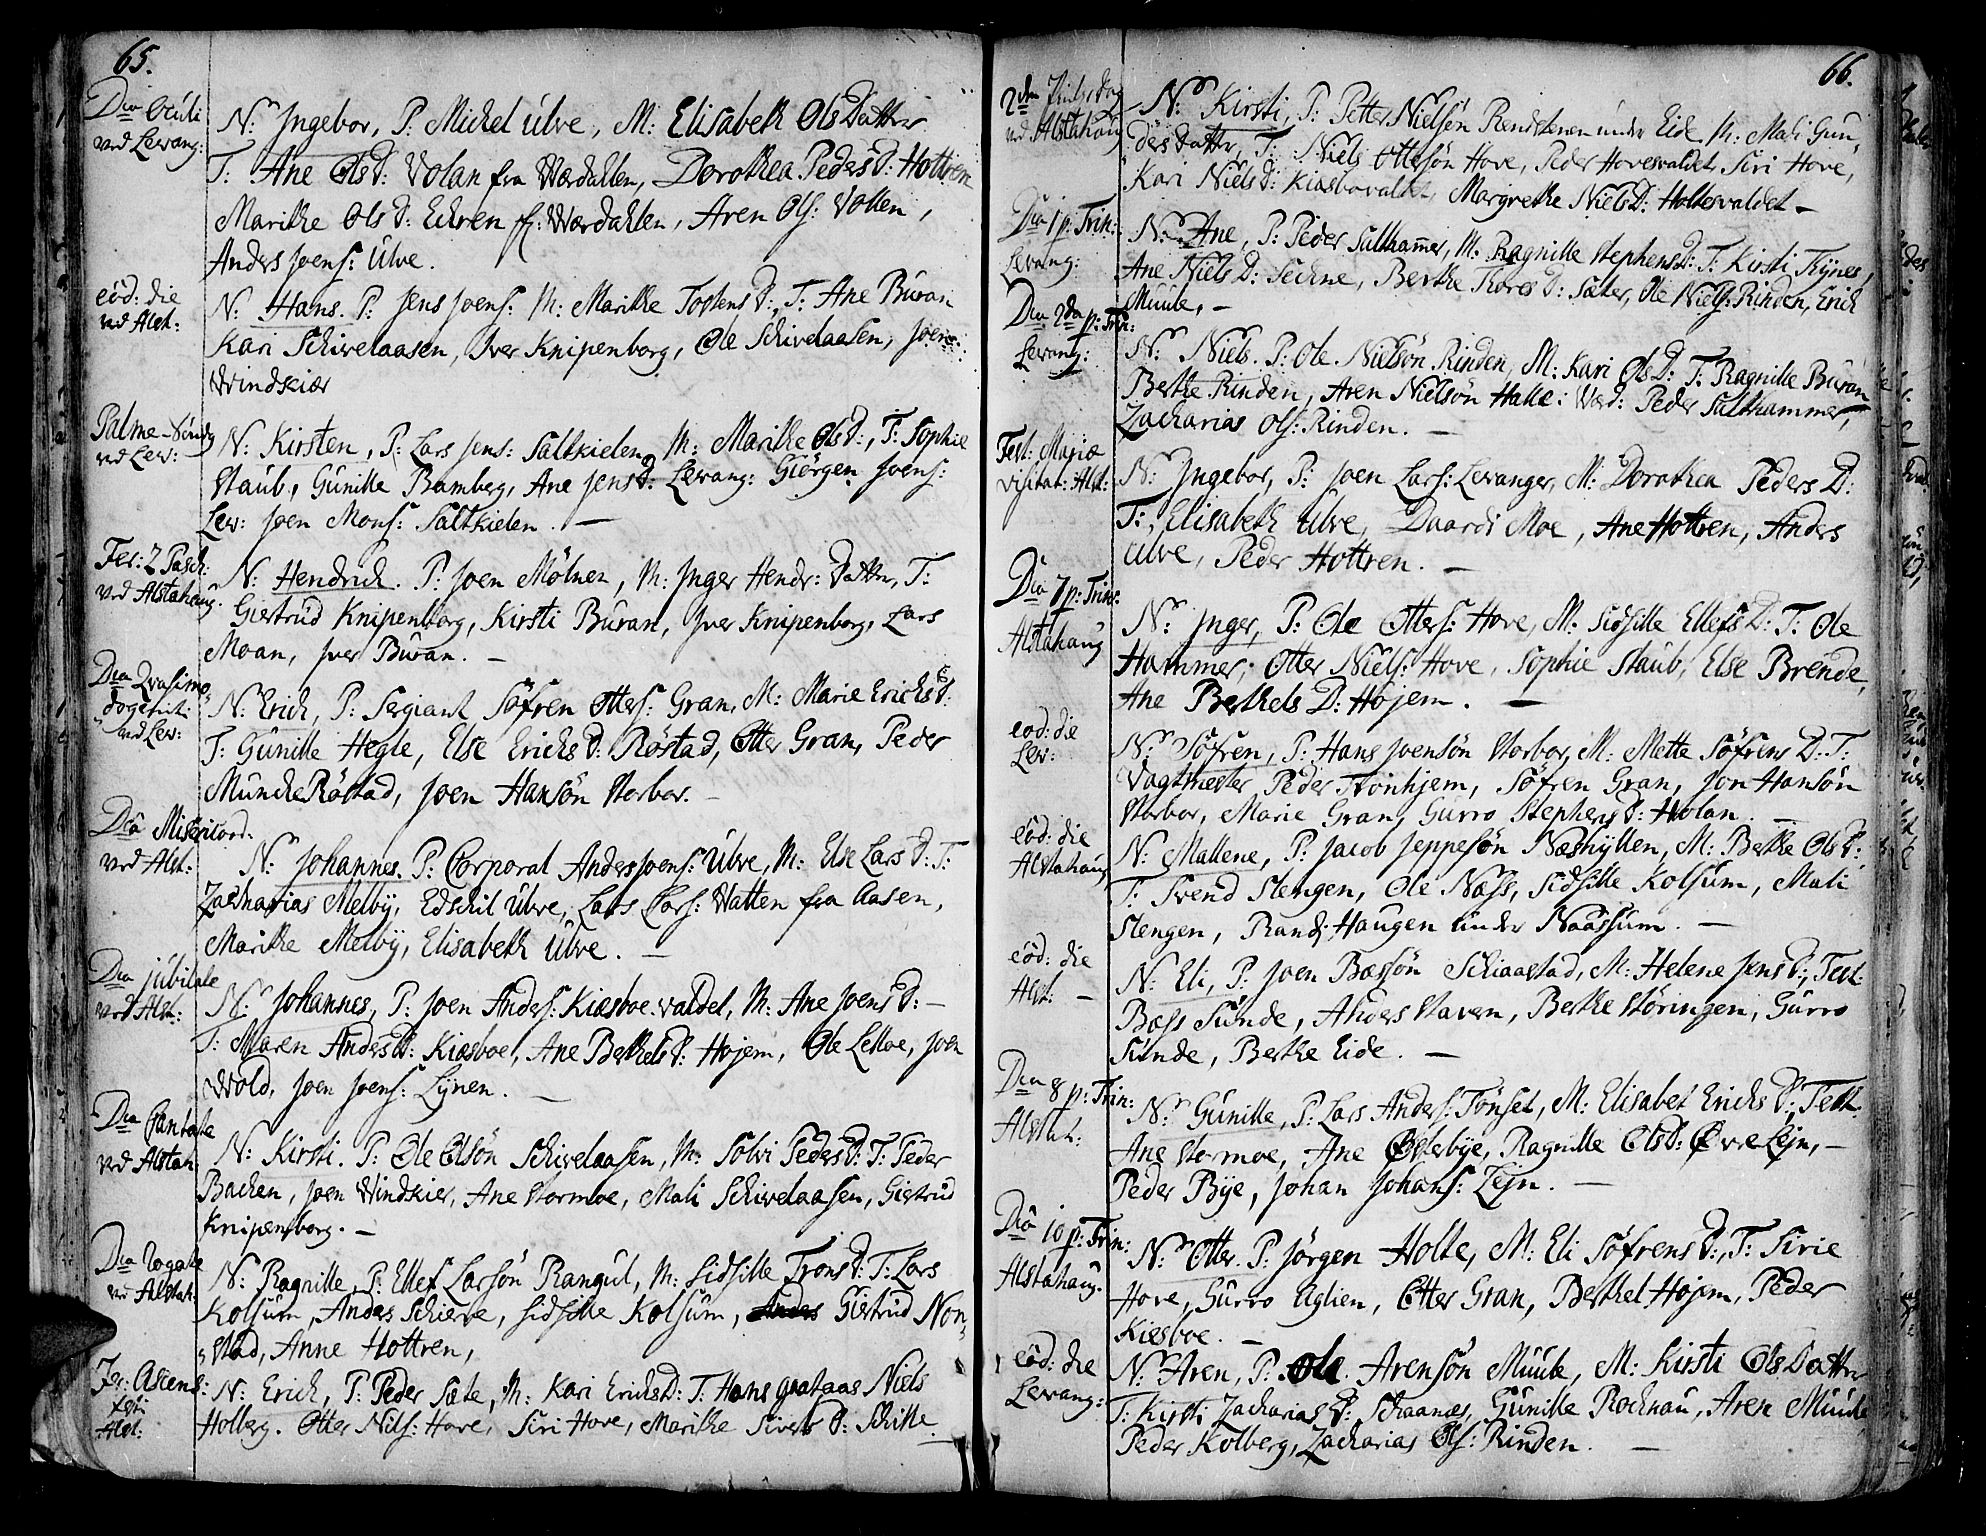 65.
Dca Oculi
ved Lewang:
N: Ingebor, P: Michel Ulve, M: Elisabeth OlsDatter
T: Ane OlsD: Volan fra Wærdahlen, Dorothea PedersD: Hottren
Marithe OlsD: Eckren ff: Wærdahlen, Aren Ols: Vollen,
Anders Joens: Ulve.
eod: die
ved Alst:
N: Hans. P: Jens Joens: M: Marithe TostensD:, T: Ane Buran
Kari Schivelaasen, Iver Knipenborg, Ole Schivelaasen, Joen
Windskiær
Palme-Søndg
ved Lev:
N: Kirsten, P: Lars Jens: Saltkielen, M: Marithe OlsD:, T: Sophie
Staub, Gunille Bamberg, Ane JensD: Lewang: Giørgen Joens:
Lev: Joen Mons: Saltkielen. —
Fer: 2 Pasch:
ved Alstahaug.
N: Hendrich. P: Joen Mølnen, M: Inger Hendr: Datter, T:
Giertrud Knipenborg, Kirsti Buran, Iver Knipenborg, Lars
Moan, Iver Buran. —
Dca Qvasimo„
„dogeniti
ved Lev:
N: Erich, P: Sergiant Søfren Otters: Gran, M: Marie ErichsD:
T: Gunille Hegle, Else ErichsD: Røstad, Otter Gran, Peder
Muncke Røstad, Joen Hansøn Storbor. —
Dca Misericord:
ved Alst:
N: Johannes. P: Corporal Anders Joens: Ulve, M: Else LarsD: T:
Zacharias Melby, Edschil Ulve, Lars Lars: Hatten fra Aasen,
Marithe Melby, Elisabeth Ulve. —
Dca Jubilate
ved Alst:
N: Johannes, P: Joen Anders: Kiæsboe-valdet, M: Ane JoensD: —
T: Maren AndersD: Kiæsboe, Ane BerthelsD: Hojem, Ole Lelloe, Joen
Wold, Joen Joens: Lynen. —
Dca Cantate
ved Alstah:
N: Kirsti. P: Ole Olsøn Schivelaasen, M: Solvi PedersD: T: Peder
Backen, Joen Windskier, Ane Stormoe, Mali Schivelaasen, Giertrud
Knipenborg. —
Dca Rogate
ved Alstah:
N: Ragnille, P: Ellef Larsøn Rangul, M: Sidsille TronsD: T: Lars
Kolsum, Anders Schierve, Sidsille Kolsum, Giertrud Non„
„stad, Anne Hottren,
Fer: Ascens:
Alst:
N: Erich, P: Peder Sæte, M: Kari ErichsD: T: Hans Niels
Holberg. Otter Nils: Hove, Siri Hove, Marithe SivertsD: Schille.
66.
2den Pintsedag
ved Alstahaug
N: Kirsti, P: Petter Nielsøn Rendsteren under Eide, M: Mali Gun„
„ders Datter, T: Niels Ottesøn Hove, Peder Hovesvaldet, Siri Hove,
Kari NielsD: Kiæsbovaldet, Margrethe NielsD: Holtesvaldet —
Dca 1 p: Trin:
Levang:
N: Ane, P: Peder Salthammer, M: Ragnille StephensD: T: Kirsti Trynes,
Ane NielsD: Techne, Berthe ThoresD: Sæter, Ole Niels: Rinden, Erich
Muule, —
Dca 2da p: Trin:
Lewang:
N: Niels. P: Ole Nielsøn Rinden, M: Kari OlsD: T: Ragnille Buran
Berthe Rinden, Aren Nielsøn Halle: Wær: Peder Salthammer,
Zacharias Ols: Rinden. —
Fest: Mariæ
visitat: Alst:
N: Ingebor, P: Joen Lars: Levanger, M: Dorothea PedersD:
T: Elisabeth Ulve, Daardi Moe, Ane Hottren, Anders
Ulve, Peder Hottren. —
Dca 7 p: Trin:
Alstahaug
N: Inger, P: Ole Otters: Hove, M: Sidsille EllefsD: T: Ole
Hammer, Otter Niels: Hove, Sophie Staub, Else Brende,
Ane BerthelsD: Hojem. —
eod: die
Lev:
N: Søfren, P: Hans Joensøn Storbor, M: Mette SøfrensD: T:
Vagtmester Peder Tronhjem, Søfren Gran, Jon Hansøn
Storbor, Marie Gran, Gurro StephensD: Holan. —
eod: die
Alstahaug
N: Mallene, P: Jacob Jeppesøn Næshyllen, M: Berthe OlsD:
T: Svend Stengen, Ole Næss, Sidsille Kolsum, Mali
Stengen, Randi Haugen under Naassum. —
eod: die
Alst: —
N: Eli, P: Joen Bæssøn Schiaastad, M: Helene JensD:, Test:
Bæss Sunde, Anders Staven, Berthe Støringen, Gurro
Sunde, Berthe Eide. —
Dca 8 p: Trin:
Alstah:
N: Gunille, P: Lars Anders: Tønset, M: Elisabet ErichsD: Test:
Ane Stormoe, Ane Østerbye, Ragnille OlsD: Øvre Lejn, —
Peder Bye, Johan Johans: Lejn. —
Dca 10 p: Trin:
Alstahaug.
N: Otter. P: Jørgen Holte, M: Eli SøfrensD:, T: Sirie
Hove, Gurro Aglien, Otter Gran, Berthel Hojem, Peder
Kiesboe. —
eod: die
Lewang:
N: Aren, P: Ole Arensøn Muule, M: Kirsti OlsDatter
T: Kirsti ZachariasD: Schaanes, Gunille Rochnau, Aren Muule
Peder Kolberg, Zacharias Ols: Rinden. —